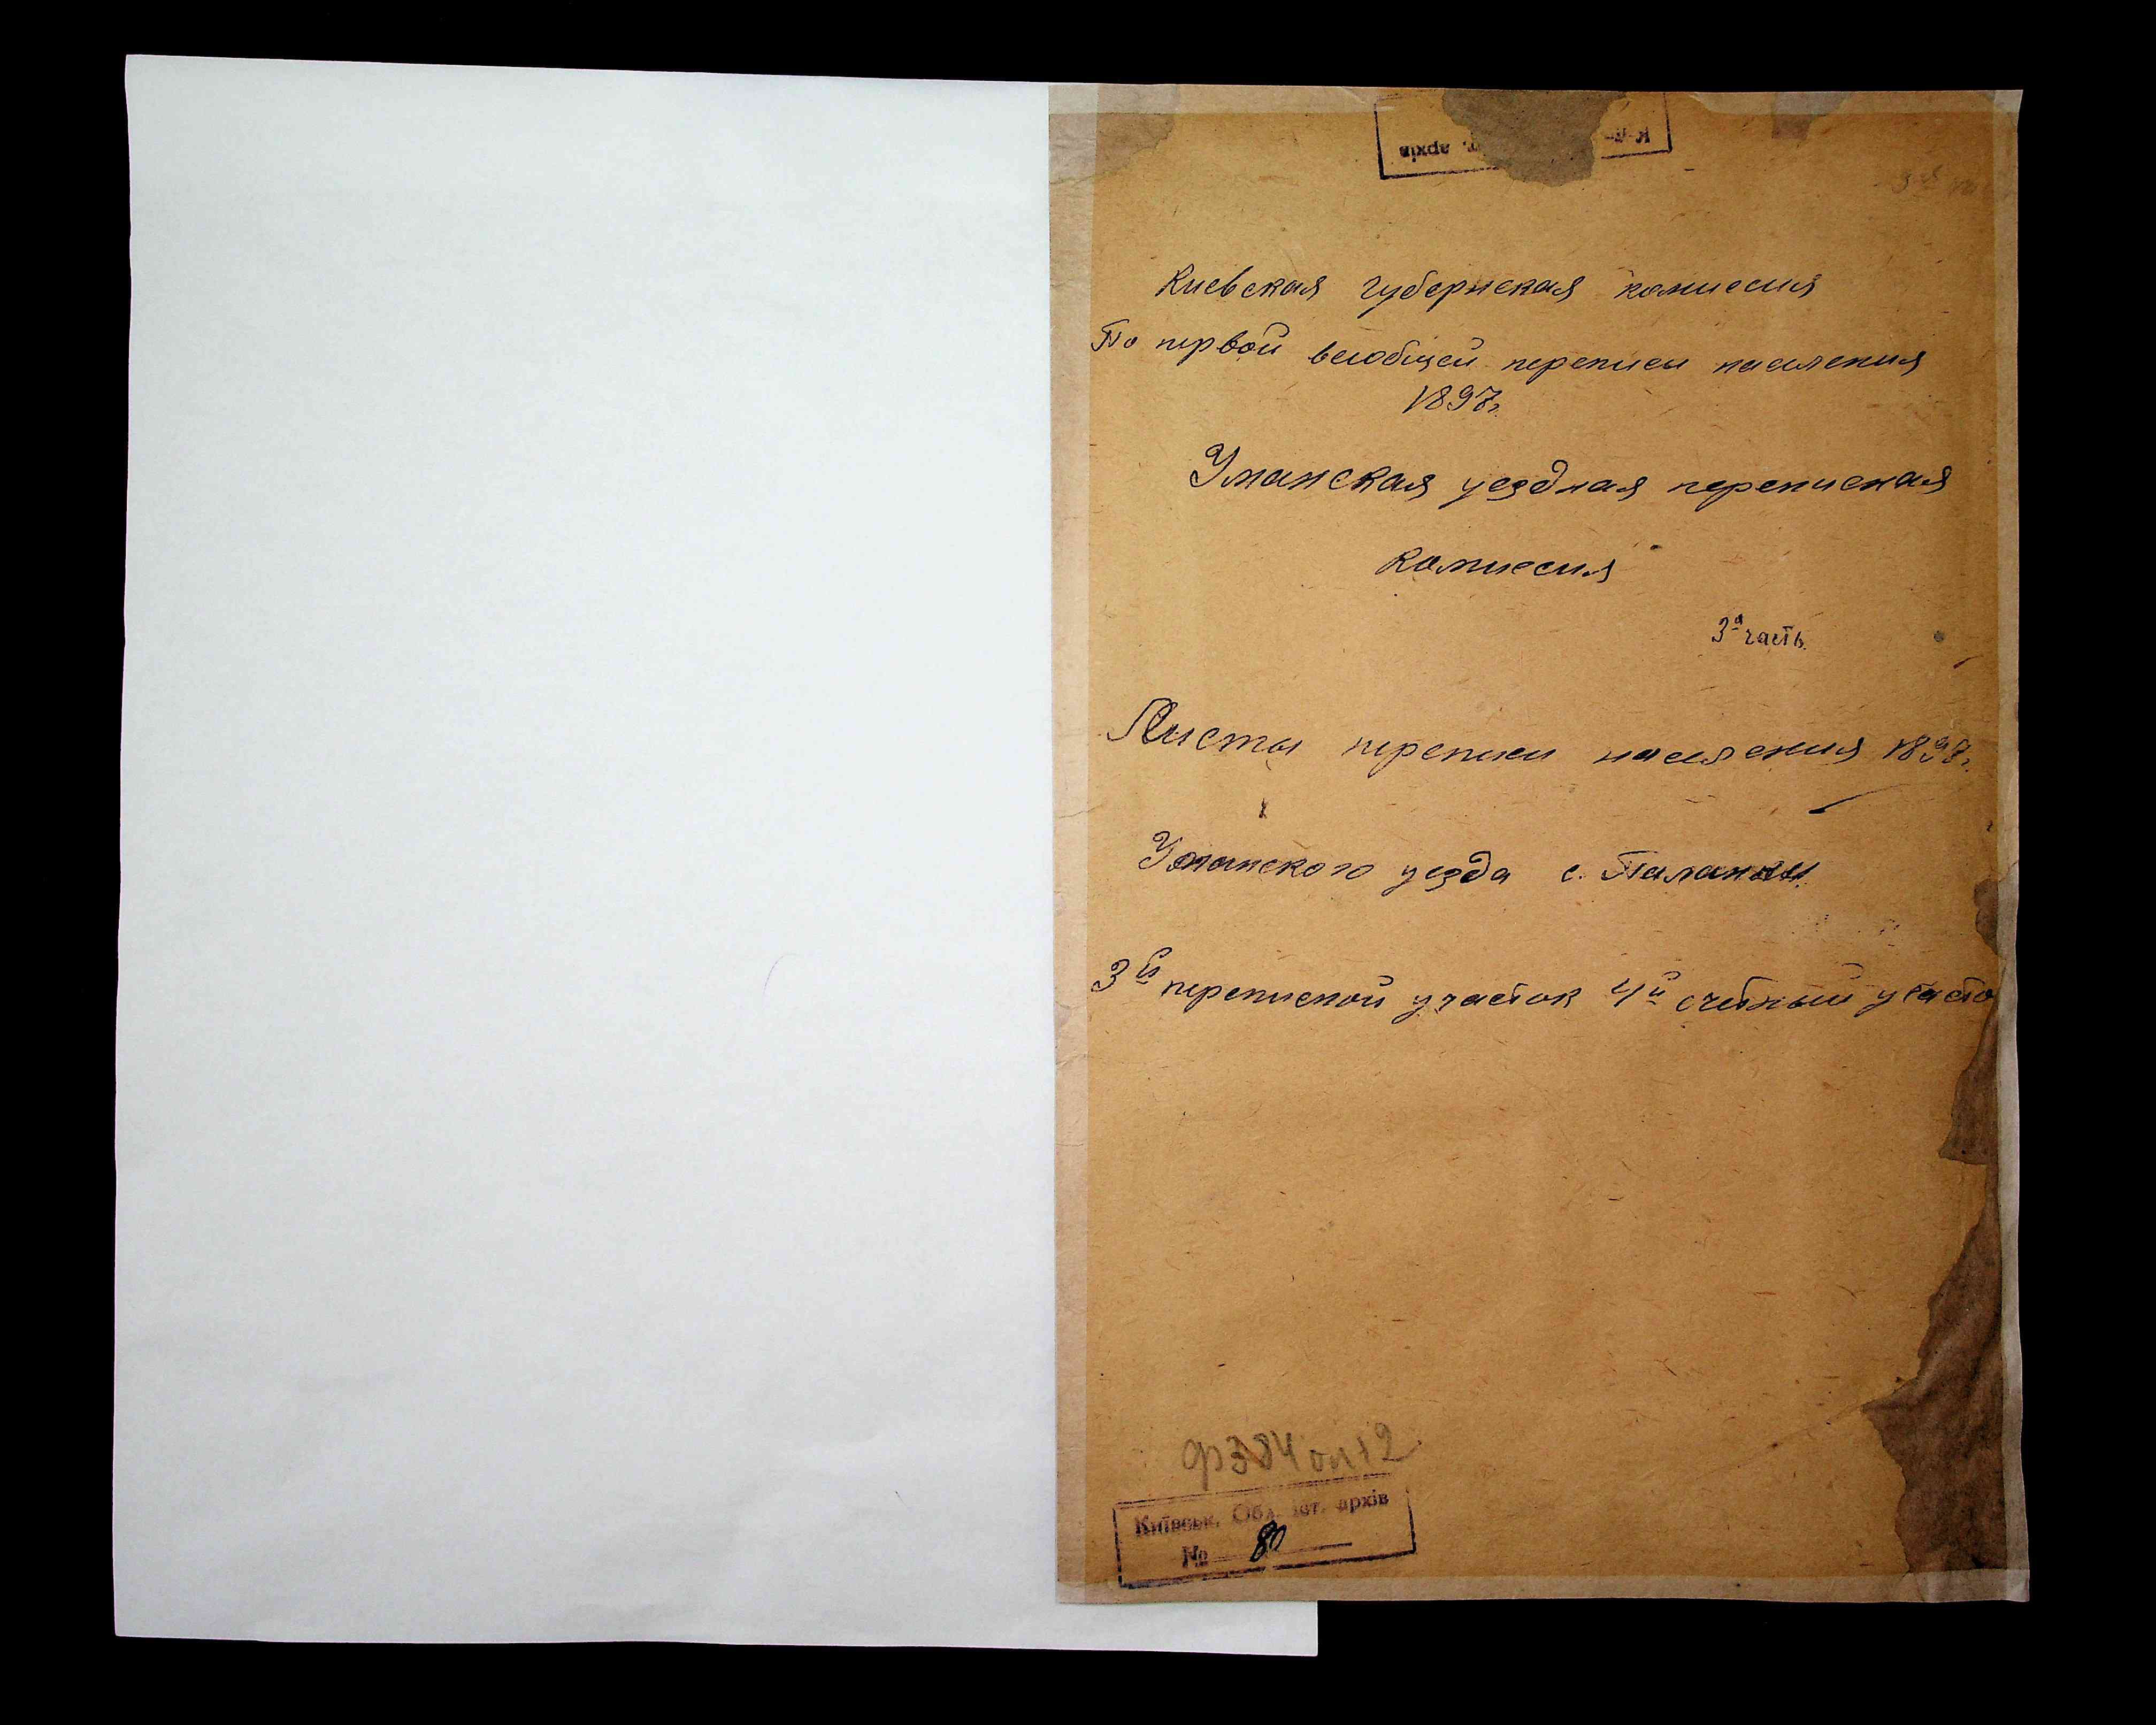 Киевская губернская комиссия
По первой всеобщей переписи населения
1897г.
Уманская уездная переписная
комиссия
3а часть.
Листы переписи населения 1897г.
Уманского уезда с. Паланки
3й переписной участок 4й счетный участо
ф384 оп12
Київськ. Обл. іст. архів
№ 80